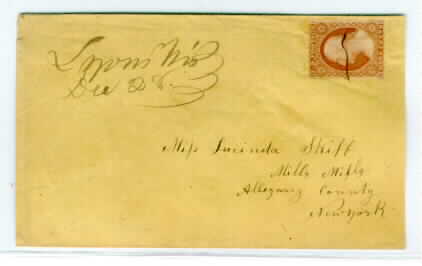 Lyons Wis
Dec 2
Miss Lucinda Skiff
Mills Mills
Allegany County
New York